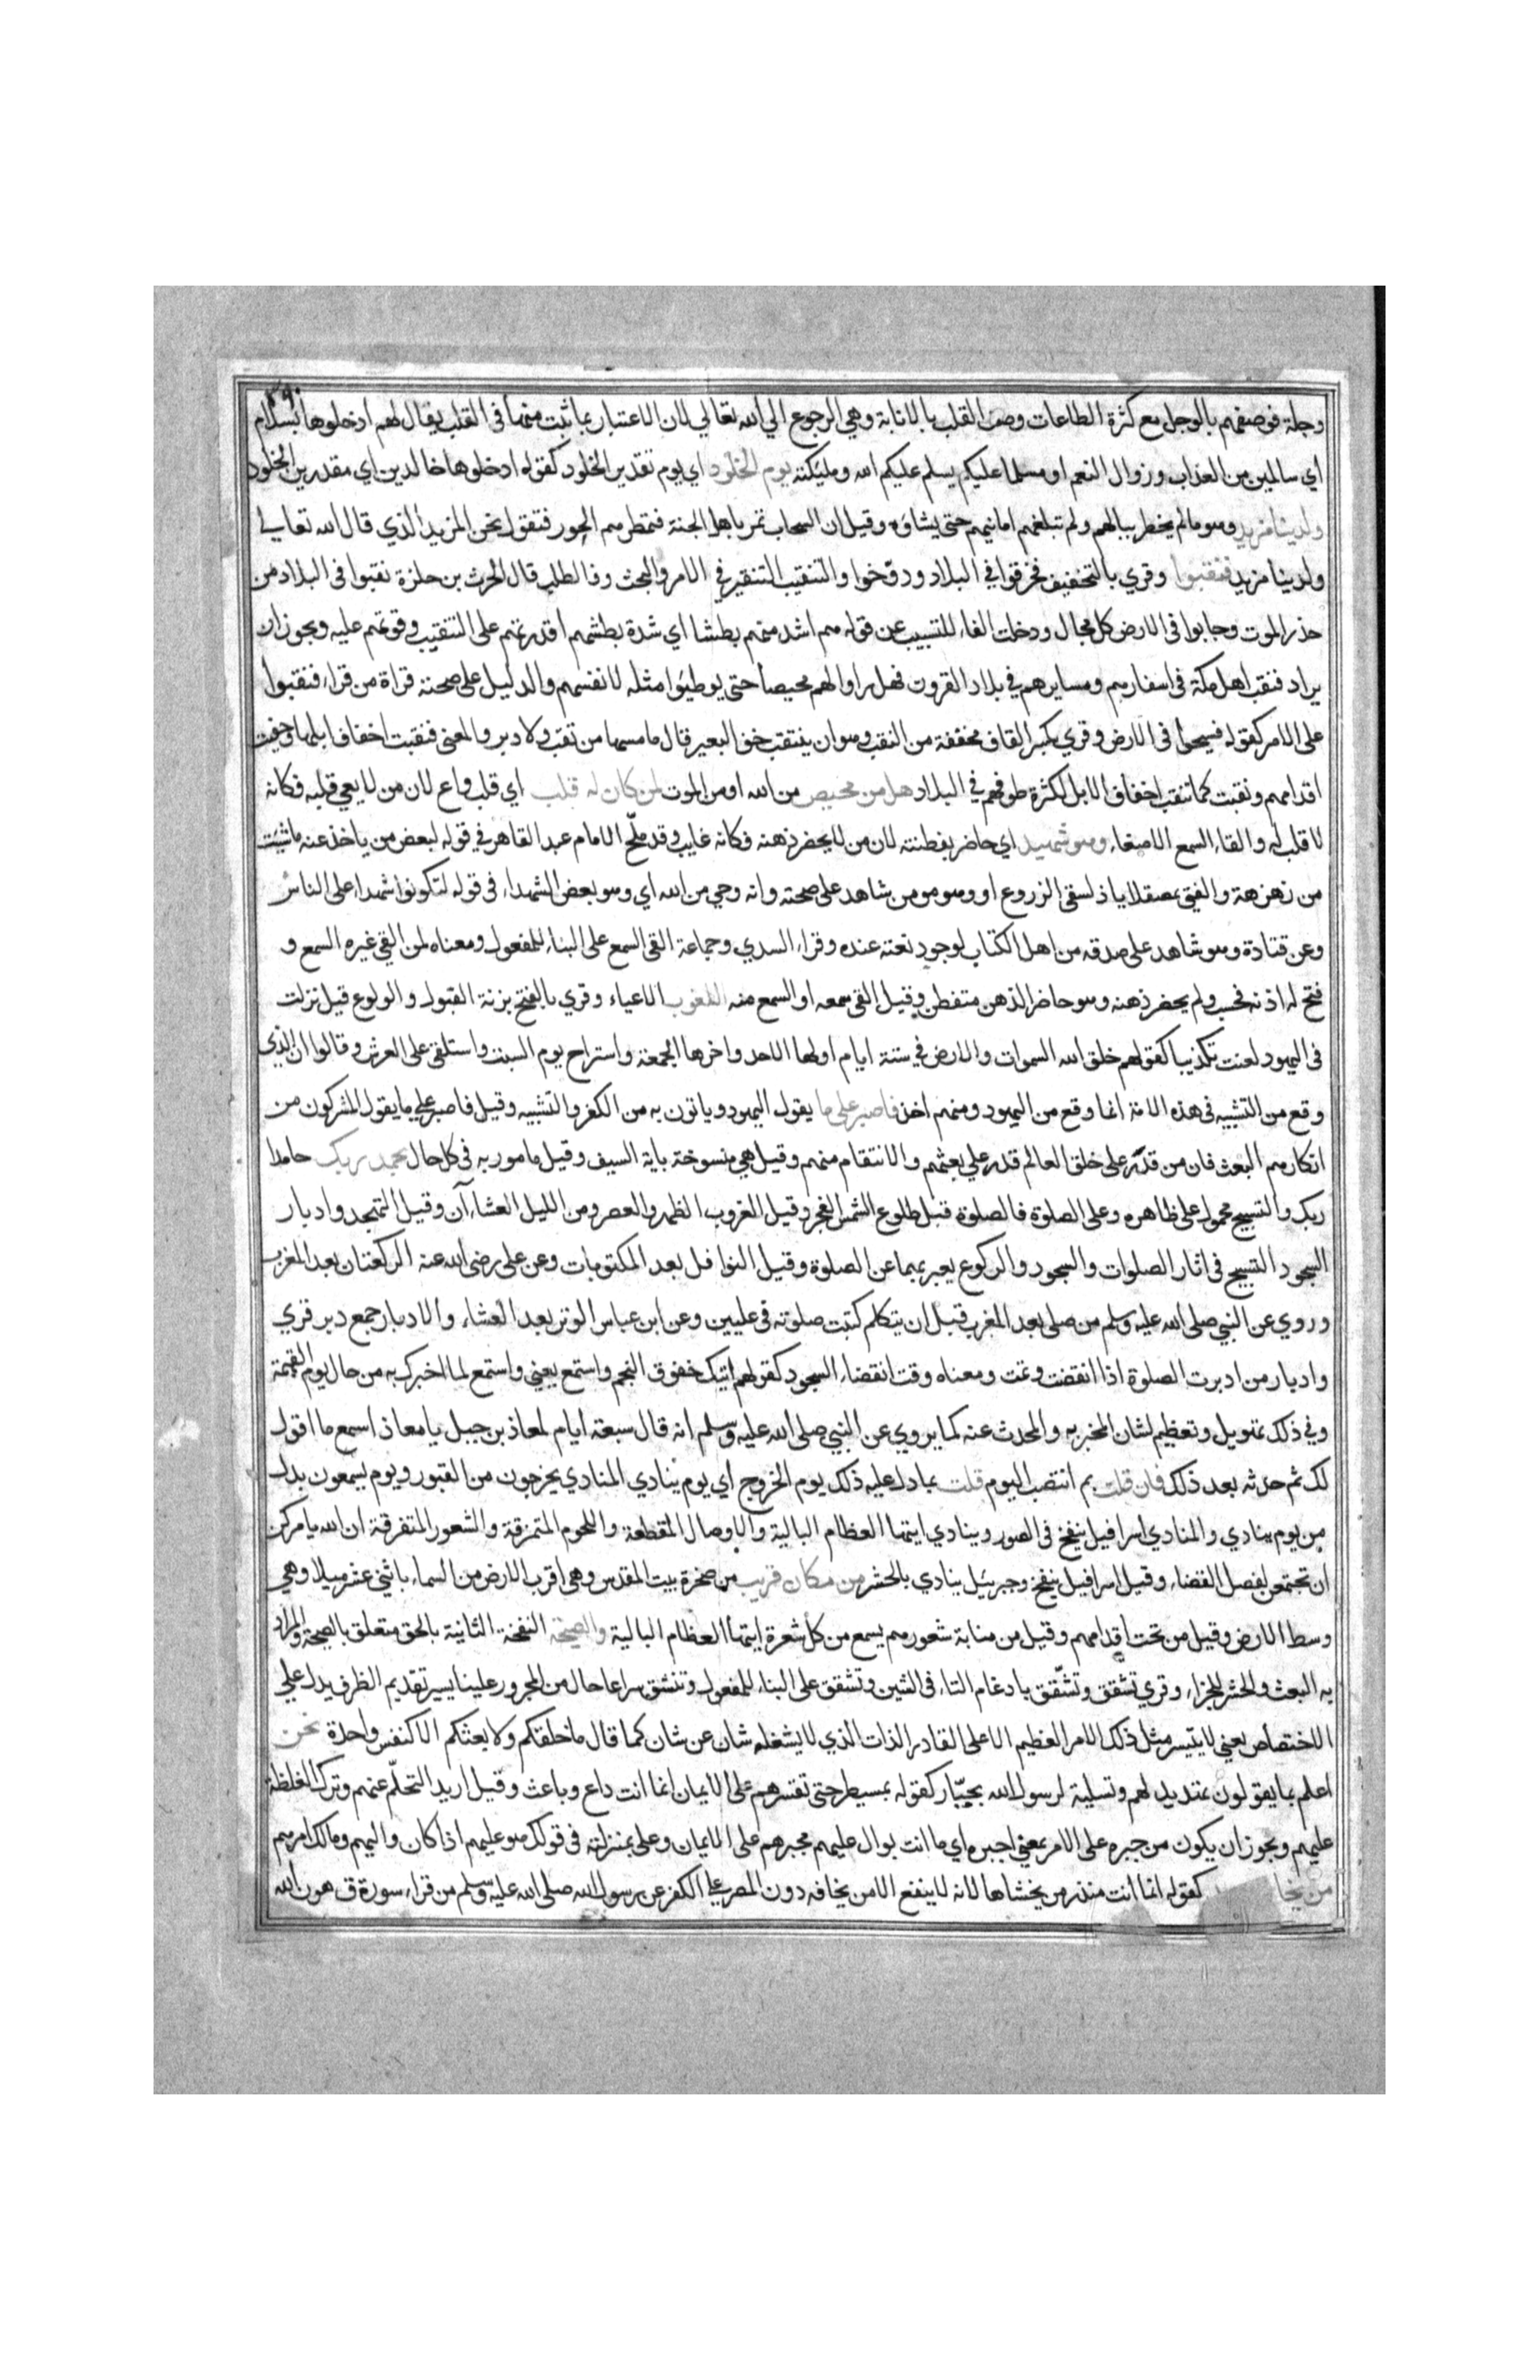 ٣٩٠
وجلة فوصفهم بالوجل مع كثرة الطاعات وصف القلب بالانابة وهي الرجوع الي الله تعالي لان الاعتبار بما ثبت منها في القلب يقال لهم ادخلوها بسلام
اي سالمين من العذاب وزوال النعم او مسلما عليكم يسلم عليكم الله ومليكته يوم الخلود اي يوم تقدير الخلود كقوله ادخلوها خالدين اي مقدرين الخلود
ولدينا مزيد وهو مالم يخطر ببالهم ولم تبلغهم امانيهم حتى يشاؤه وقيل ان السحاب تمر باهل الجنة فتمطرهم الحور فتقول نحن المزيد الذي قال الله تعالي
ولدينا مزيد فنقبوا وقري بالتخفيف فخرقوا في البلاد ودوخوا والتنقيب التنقير في الامر والبحث والطلب قال الحرث بن حلزة نقبوا في البلاد من
حذر الموت وجابوا في الارض كل مجال ودخلت الفاء للتسبيب عن قوله هم اشد منهم بطشا اي شدة بطشهم اقدرتهم على التنقيب وقوتهم عليه ويجوز ان
يراد فنقب اهل مكة في اسفارهم ومسايرهم في بلاد القرون فهل راوا لهم محيصا حتى يوطيوا مثله لانفسهم والدليل على صحته قراة من قراء فنقبوا
على الامر كقوله فسيحوا في الارض وقري بكسر القاف مخففة من النقب وهو ان ينتقب خف البعير قال مامسها من نقب ولا دبر والمعنى فنقبت اخفاف ابلهم او حفيت
اقدامهم ونقبت كما تنقب اخفاف الابل لكثرة طوفهم في البلاد هل من محيص من الله او من الموت لمن كان له قلب اي قلب واع لان من لا يعي قلبه فكانه
لا قلب له والقاء السمع الاصغاء وهو شهيد اي حاضر بفطنته لان من لا يحضر ذهنه فكانه غايب وقد ملح الامام عبد القاهر في قوله لبعض من ياخذ عنه ماشئت
من زهزهة والفتى بمصقلاباذ لسقى الزروع او وهو مومن شاهد على صحته وانه وحي من الله اي وهو بعض الشهداء في قوله لتكونوا شهدا على الناس
وعن قتادة وهو شاهد على صدقه من اهل الكتاب لوجود نعته عنده وقراء السدي وجماعة القى السمع على البناء للمفعول ومعناه لمن القي غيره السمع و
فتح له اذنه فحسب ولم يحضر ذهنه وهو حاضر الذهن متفطن وقيل القى سمعه او السمع منه اللغوب الاعياء وقري بالفتح بزنة القبول والولوع قيل نزلت
في اليهود لعنت تكذيبا لقولهم خلق الله السموات والارض في ستة ايام اولها الاحد واخرها الجمعة واستراح يوم السبت واستلقى على العرش وقالوا ان الذى
وقع من التشبيه في هذه الامة انما وقع من اليهود ومنهم اخذ فاصبر على ما يقول اليهود وياتون به من الكفر والتشبيه وقيل فاصبر على ما يقول المشركون من
انكارهم البعث فان من قدر على خلق العالم قدر على بعثهم والانتقام منهم وقيل هي منسوخة باية السيف وقيل مامور به في كل حال بحمد ربك حامدا
ربك والتسبيح محمول على ظاهره وعلى الصلوة فالصلوة قبل طلوع الشمس الفجر وقيل الغروب الظهر والعصر ومن الليل العشاءآن وقيل التهجد وادبار
السجود التسبيح في اثار الصلوات والسجود والركوع يعبر بهما عن الصلوة وقيل النوافل بعد المكتوبات وعن على رضى الله عنه الركعتان بعد المغرب
وروي عن النبي صلى الله عليه وسلم من صلى بعد المغرب قبل ان يتكلم كتبت صلوته في عليين وعن ابن عباس الوتر بعد العشاء والادبار جمع دبر قري
وادبار من ادبرت الصلوة اذا انقضت وتمت ومعناه وقت انقضاء السجود كقولهم اتيك خفوق النجم واستمع يعني واستمع لما اخبرك به من حال يوم القيمة
وفي ذلك تهويل وتعظيم لشان المخبر به والمحدث عنه كما يروي عن النبي صلى الله عليه وسلم انه قال سبعة ايام لمعاذ بن جبل يا معاذ اسمع ما اقول
لك ثم حدثه بعد ذلك فان قلت بم انتصب اليوم قلت بما دل عليه ذلك يوم الخروج اي يوم ينادي المنادي يخرجون من القبور ويوم يسمعون بدل
من يوم ينادي والمنادي اسرافيل ينفخ في الصور وينادي ايتها العظام البالية والاوصال المتقطعة واللحوم المتمزقة والشعور المتفرقة ان الله يامركن
ان تجتمعن لفصل القضاء وقيل اسرافيل ينفخ وجبريئل ينادي بالحشر من مكان قريب من صخرة بيت المقدس وهى اقرب الارض من السماء باثني عشر ميلا وهي
وسط الارض وقيل من تحت اقدامهم وقيل من منابة شعورهم يسمع من كل شعرة ايتها العظام البالية والصيحة النفخة الثانية بالحق متعلق بالصيحة والمراد
به البعث والحشر للجزاء وقري تشقق وتشقق بادغام التاء في الشين وتشقق على البناء للمفعول وتنشق سراعا حال من المجرور علينا يسير تقديم الظرف يدل على
الاختصاص يعني لا يتيسر مثل ذلك الامر العظيم الا على القادر الذات الذي لا يشغله شان عن شان كما قال ما خلقكم ولا بعثكم الا كنفس واحدة نحن
اعلم بما يقولون تهديد لهم وتسلية لرسول الله بجبار كقوله بمسيطر حتى تقسرهم على الايمان انما انت داع وباعث وقيل اريد التحلم عنهم وترك الغلظة
عليهم ويجوز ان يكون من جبره على الامر بمعنى اجبره اي ما انت بوال عليهم مجبرهم على الايمان وعلى بمنزلته في قولك هو عليهم اذا كان واليهم ومالك امرهم
من يخا كقوله انما انت منذر من يخشاها لانه لا ينفع الا من يخافه دون المصر على الكفر عن رسول الله صلى الله عليه وسلم من قراء سورة ق هون الله